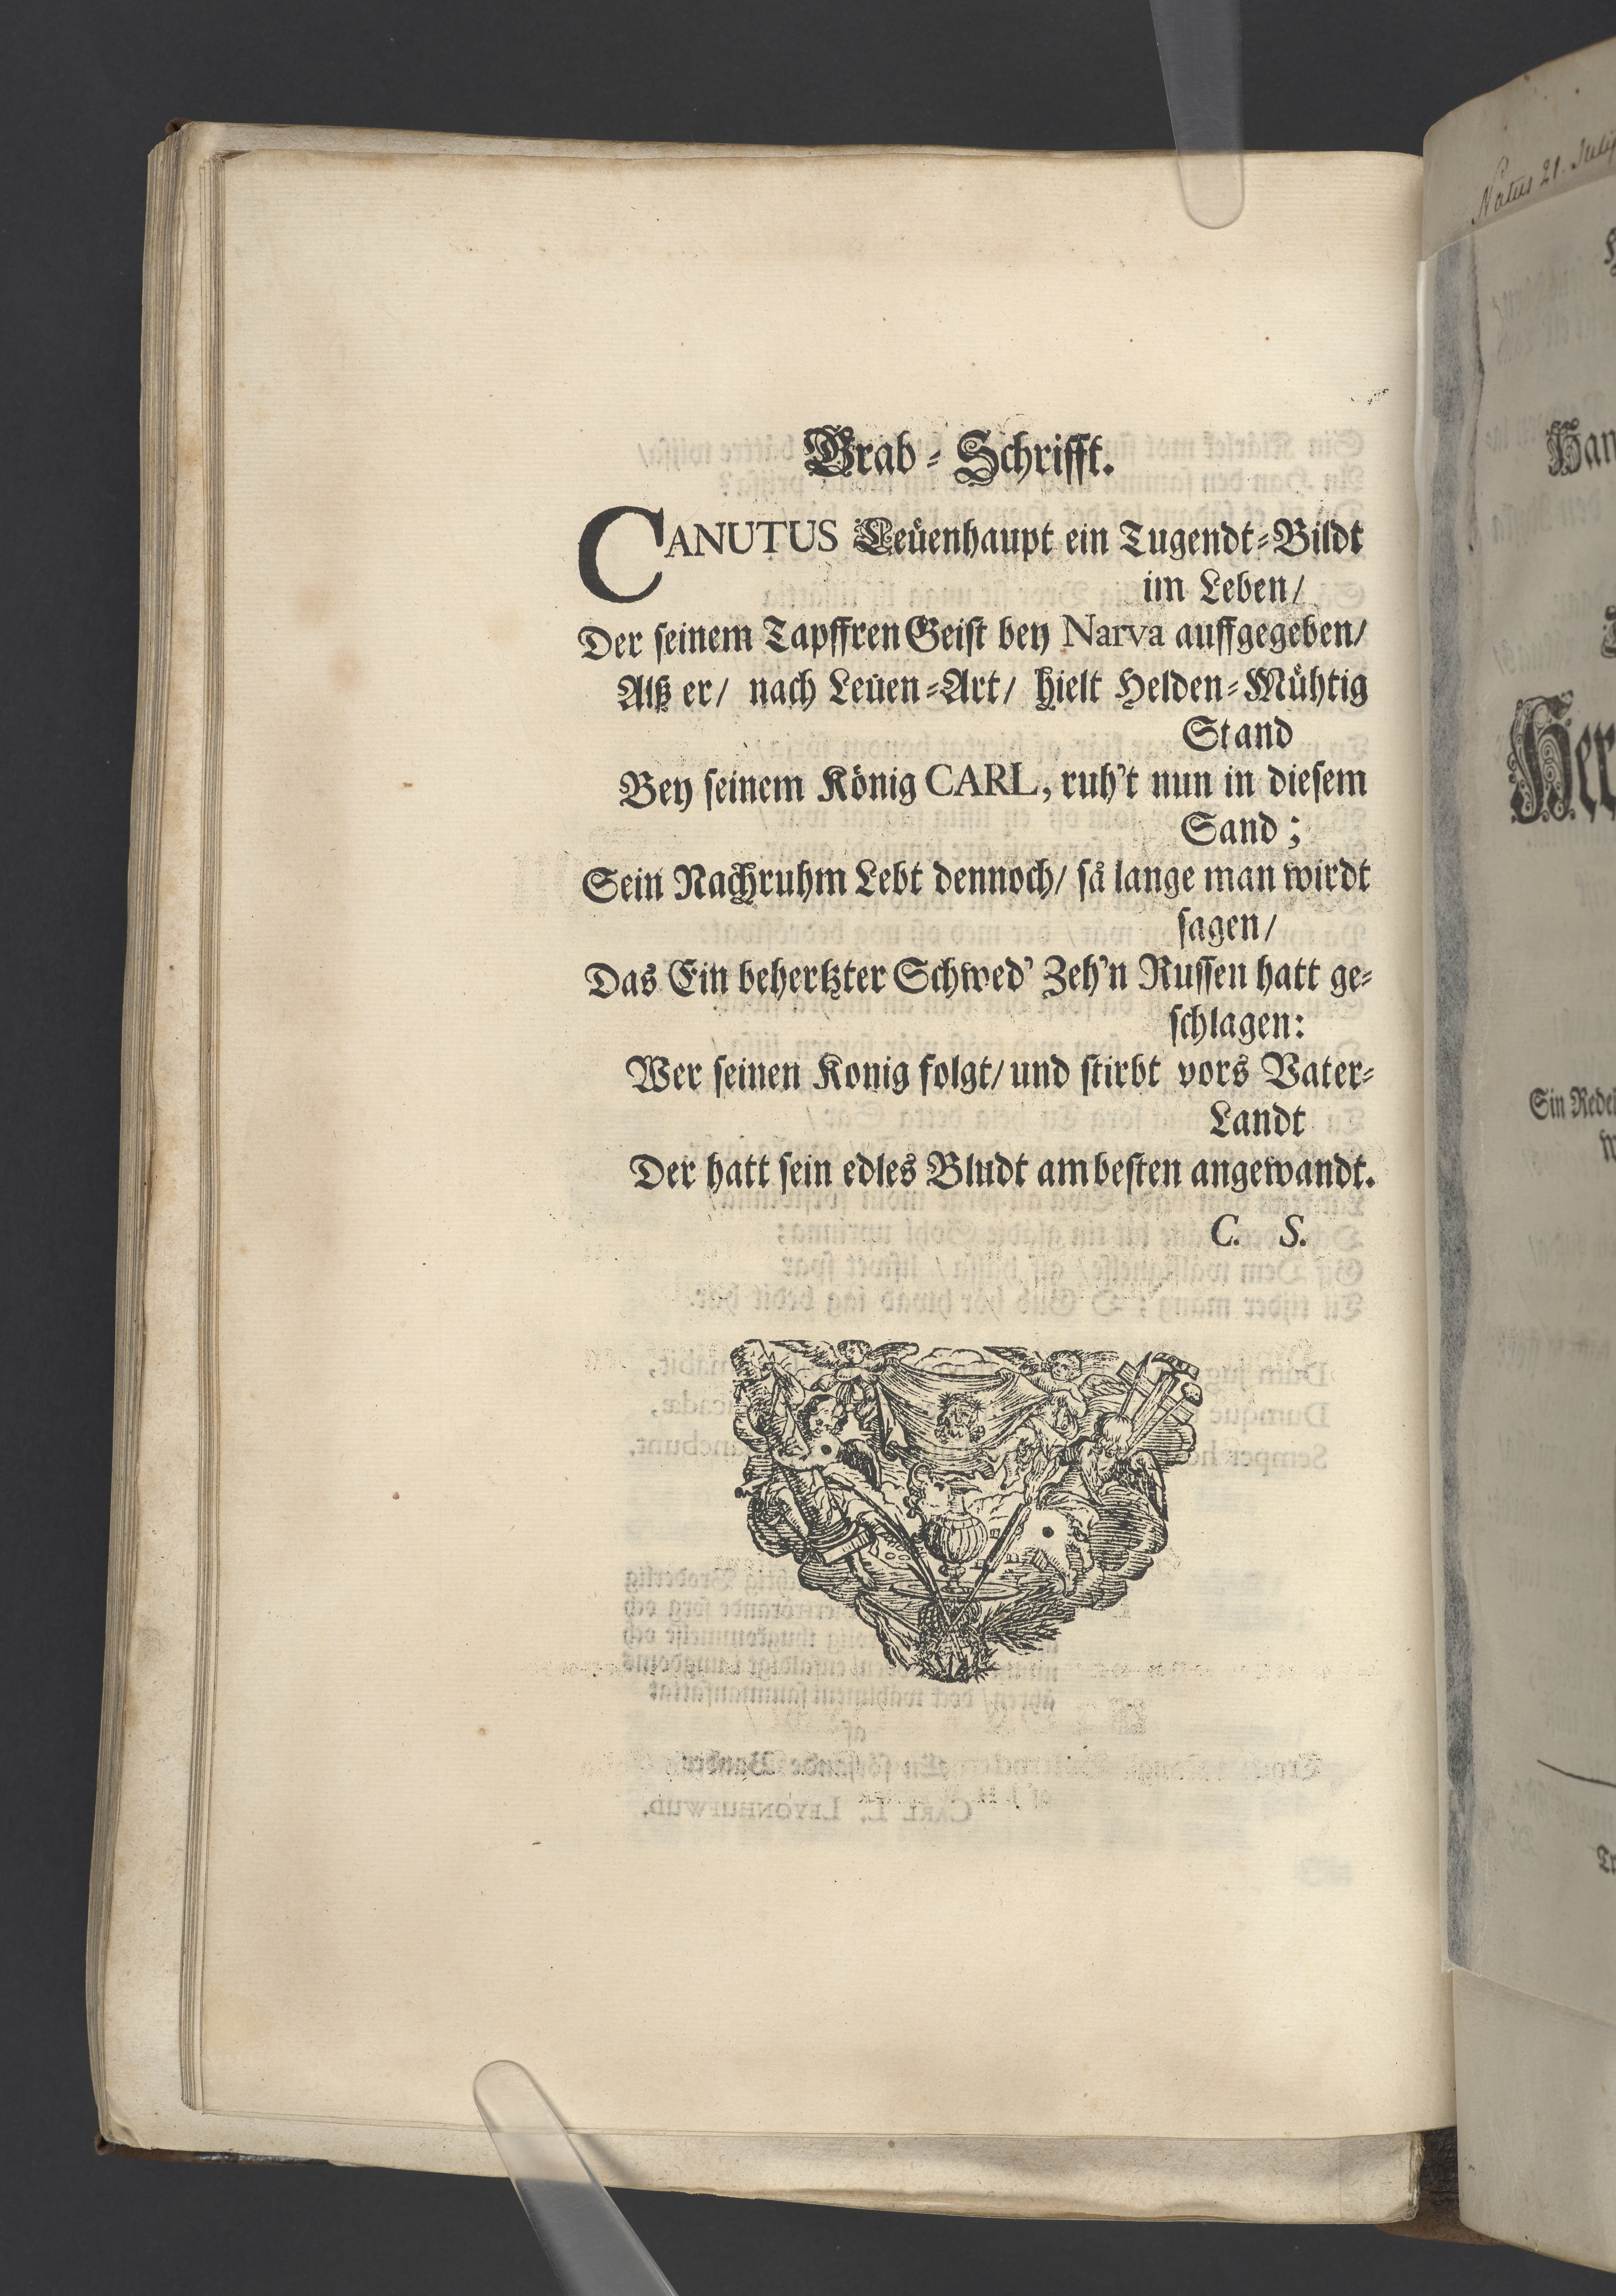 Grab-Schrifft.
CANUTUS Leüenhaupt ein Tugendt-Bildt
im Leben/
Der seinem Tapffren Geist bey Narva auffgegeben/
Alß er/ nach Leüen-Art/ hielt Helden-Mühtig
Stand
Bey seinem König CARL, ruh't nun in diesem
Sand;
Sein Nachruhm Lebt dennoch/ så lange man wirdt
sagen/
Das Ein behertzter Schwed' Zeh'n Russen hatt ge-
schlagen:
Wer seinen Konig folgt/ und stirbt vors Vater-
Landt
Der hatt sein edles Bludt am besten angewandt.
C. S.
Natus 21. July
Sin Rede